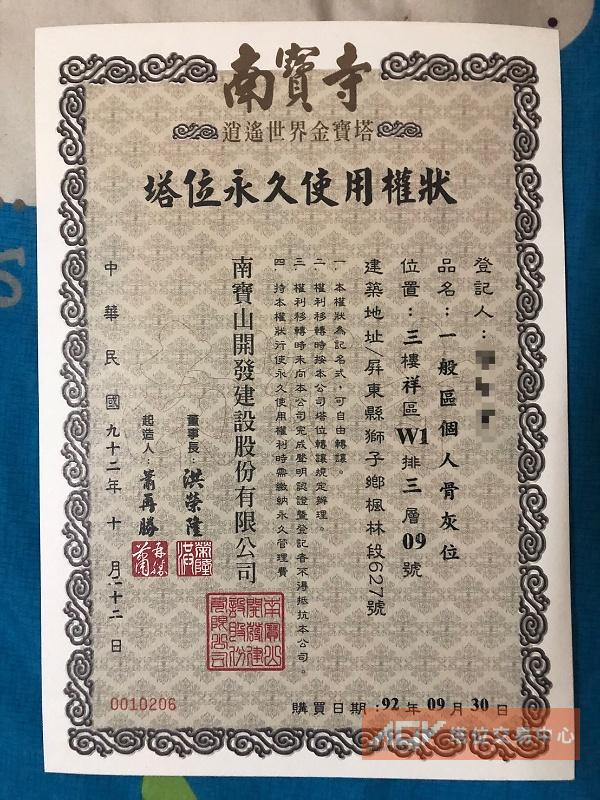 南寶寺
逍遙世界金寶塔
塔位永久使用權狀
登記人：
品名：一般區個人骨灰位
位置：三樓祥區W1排三層09號
建築地址/屏東縣獅子鄉楓林段627號
一、本權狀為記名式，可自由轉讓。
二、權利移轉時按本公司塔位轉讓規定辦理。
三、權利移轉時未向本公司完成聲明認證暨登記者不得抵抗本公司。
四、持本權狀行使永久使用權利時需繳納永久管理費
南寶山開發建設股份有限公司
董事長：洪榮隆
起造人：蕭再勝
中華民國九十二年十月二十二日
0010206
購買日期：92年09月30日
塔位交易中心